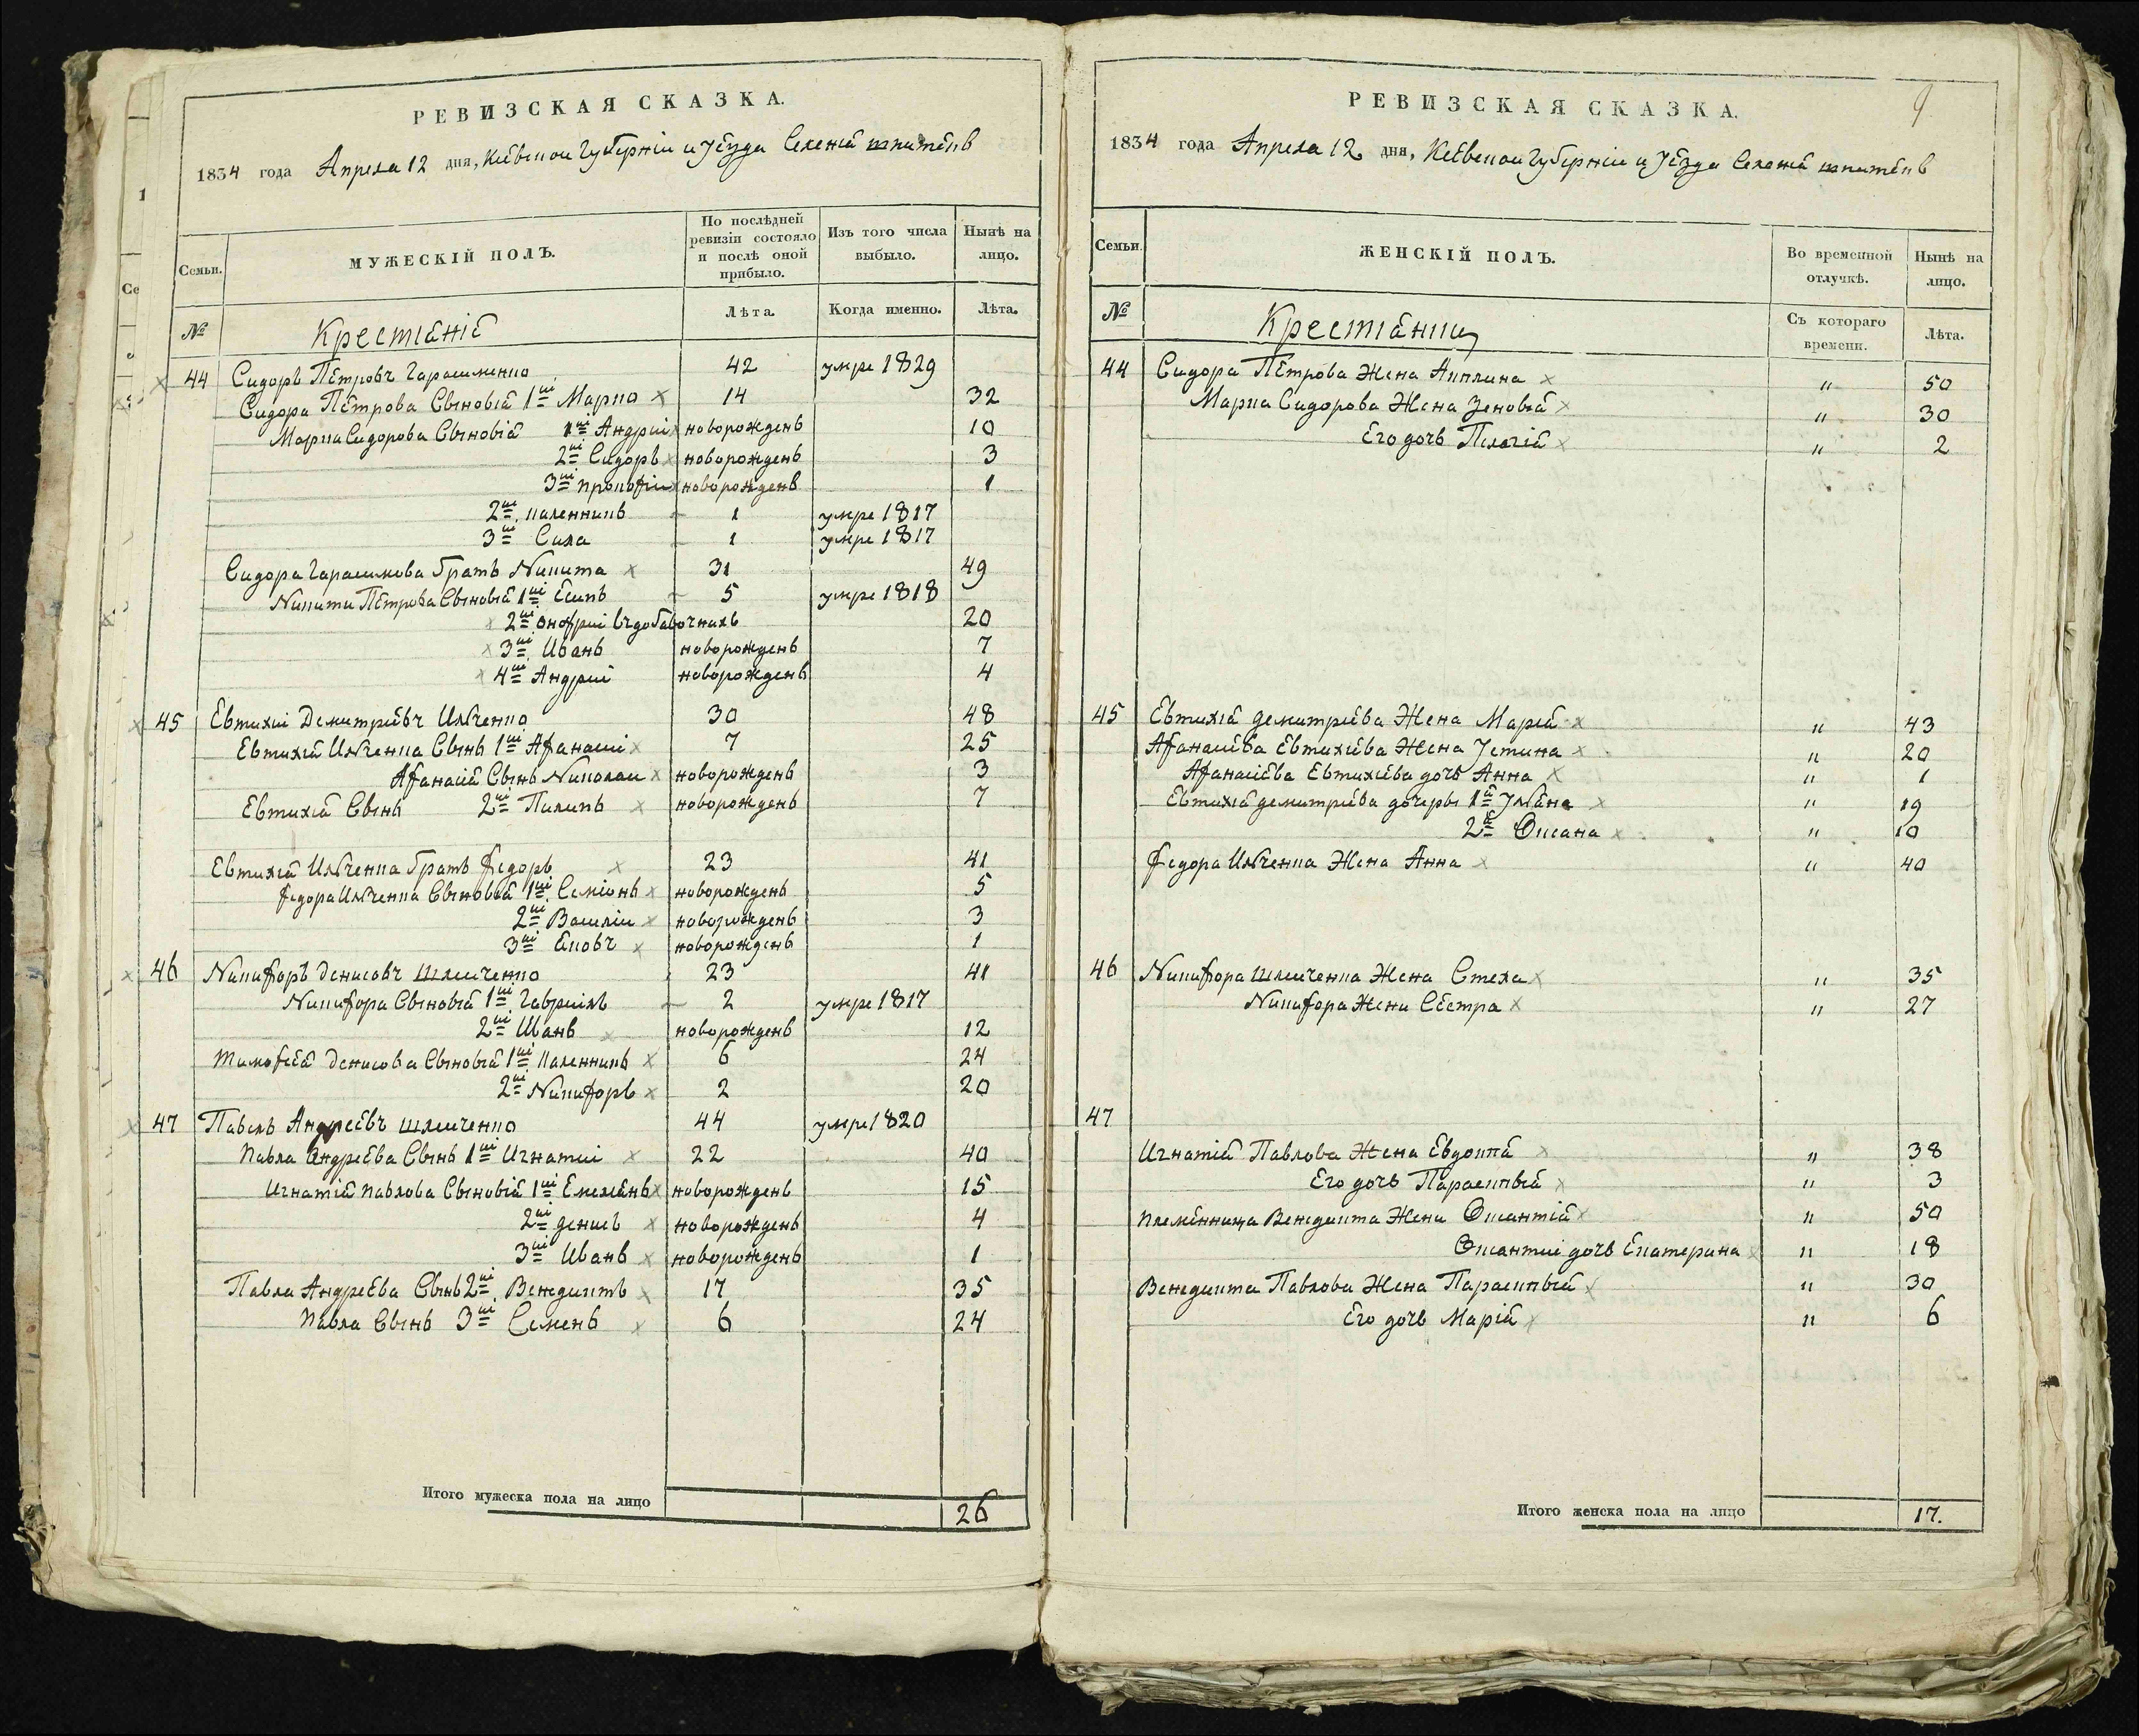 РЕВИЗСКАЯ СКАЗКА.
1834 года Апреля 12 дня, Кіевской Губерніи и уезда
Семьи.
МУЖЕСКІЙ ПОЛЪ.
По послѣдней ревизіи состояло и послѣ оной прибыло.
Изъ того числа выбыло.
Нынѣ на лицо.
№
Крестіяніе
Лѣта.
Когда именно.
Лѣта.
44 Сидоръ Петровъ Гарасименко 42 умре 1829
Сидора Петрова Сыновія 1ій Марко 14 32
Марка Сидорова Сыновія 1ій Андріи новорожденъ 10
2ій Сидоръ новорожденъ 3
3ій прокофіи новорожденъ 1
2ій каленникъ 1 умре 1817
3ій Сила 1 умре 1817
Сидора Гарасимова братъ Никита 31 49
Никити Петрова Сыновія 1ій Есипъ 5 умре 1818
2ій онофріи въ добавочнихъ 20
3ій Иванъ новорожденъ 7
4ій Андріи новорожденъ 4
45 Евтихіи Демитріевъ Илченко 30 48
Евтихія Илченка Сынъ 1ій Афанасіи 7 25
Афанасія Сынъ Николаи новорожденъ 3
Евтихія Сынъ 2ій Пилипъ новорожденъ 7
Евтихія Илченка братъ федоръ 23 41
федора Илченка Сыновія 1ій Семіонъ новорожденъ 5
2ій Василіи новорожденъ 3
3ій Яковъ новорожденъ 1
46 Никифоръ денисовъ 23 41
Никифора Сыновія 1ій Гавриілъ 2 умре 1817
2ій Иванъ новорожденъ 12
Тимофея денисова Сыновія 1ій каленникъ 6 24
2ій Никифоръ 2 20
47 Павелъ Андреевъ 44 умре 1820
павла Андреева Сынъ 1ій Игнатіи 22 40
Игнатія павлова Сыновія 1ій Емелянъ новорожденъ 15
2ій денисъ новорожденъ 4
3ій Иванъ новорожденъ 1
Павла Андреева Сынъ 2ій Венедиктъ 17 35
павла Сынъ 3ій Семенъ 6 24
Итого мужеска пола на лицо 26
9
РЕВИЗСКАЯ СКАЗКА.
1834 года Апреля 12 дня, Кіевской Губерніи и уезда
Семьи.
ЖЕНСКІЙ ПОЛЪ.
Во временной отлучкѣ.
Нынѣ на лицо.
№
Крестіянки
Съ котораго времени.
Лѣта.
44 Сидора Петрова Жена Акилина " 50
Марка Сидорова Жена Зеновія " 30
Его дочь Пелагія " 2
45 Евтихія демитріева Жена Марія " 43
Афанасіева Евтихіева Жена Устина " 20
Афанасіева Евтихіева дочь Анна " 1
Евтихія демитріева дочеры 1я Уляна " 19
2я Оксана " 10
федора Илченка Жена Анна " 40
46 Никифора Жена Стеха " 35
Никифора Жени Сестра " 27
47
Игнатія Павлова Жена Евдокія " 38
Его дочь Параскивія " 3
племянника Венедикта Жена Оксантія " 50
Оксантіи дочь Екатерина " 18
Венедикта Павлова Жена Параскивія " 30
Его дочь Марія " 6
Итого женска пола на лицо 17.